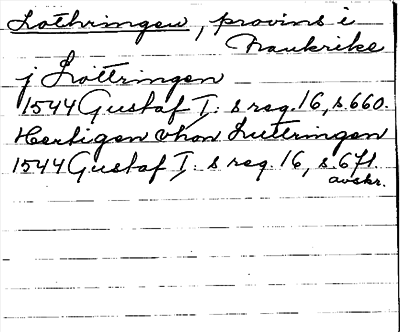 Lothringen, provins i
Frankrike
j Lottringen
1544 Gustaf I: s reg. 16, s. 660.
Hertigen vhon Luttringen
1544 Gustaf I: s reg. 16, s. 671.
avskr.